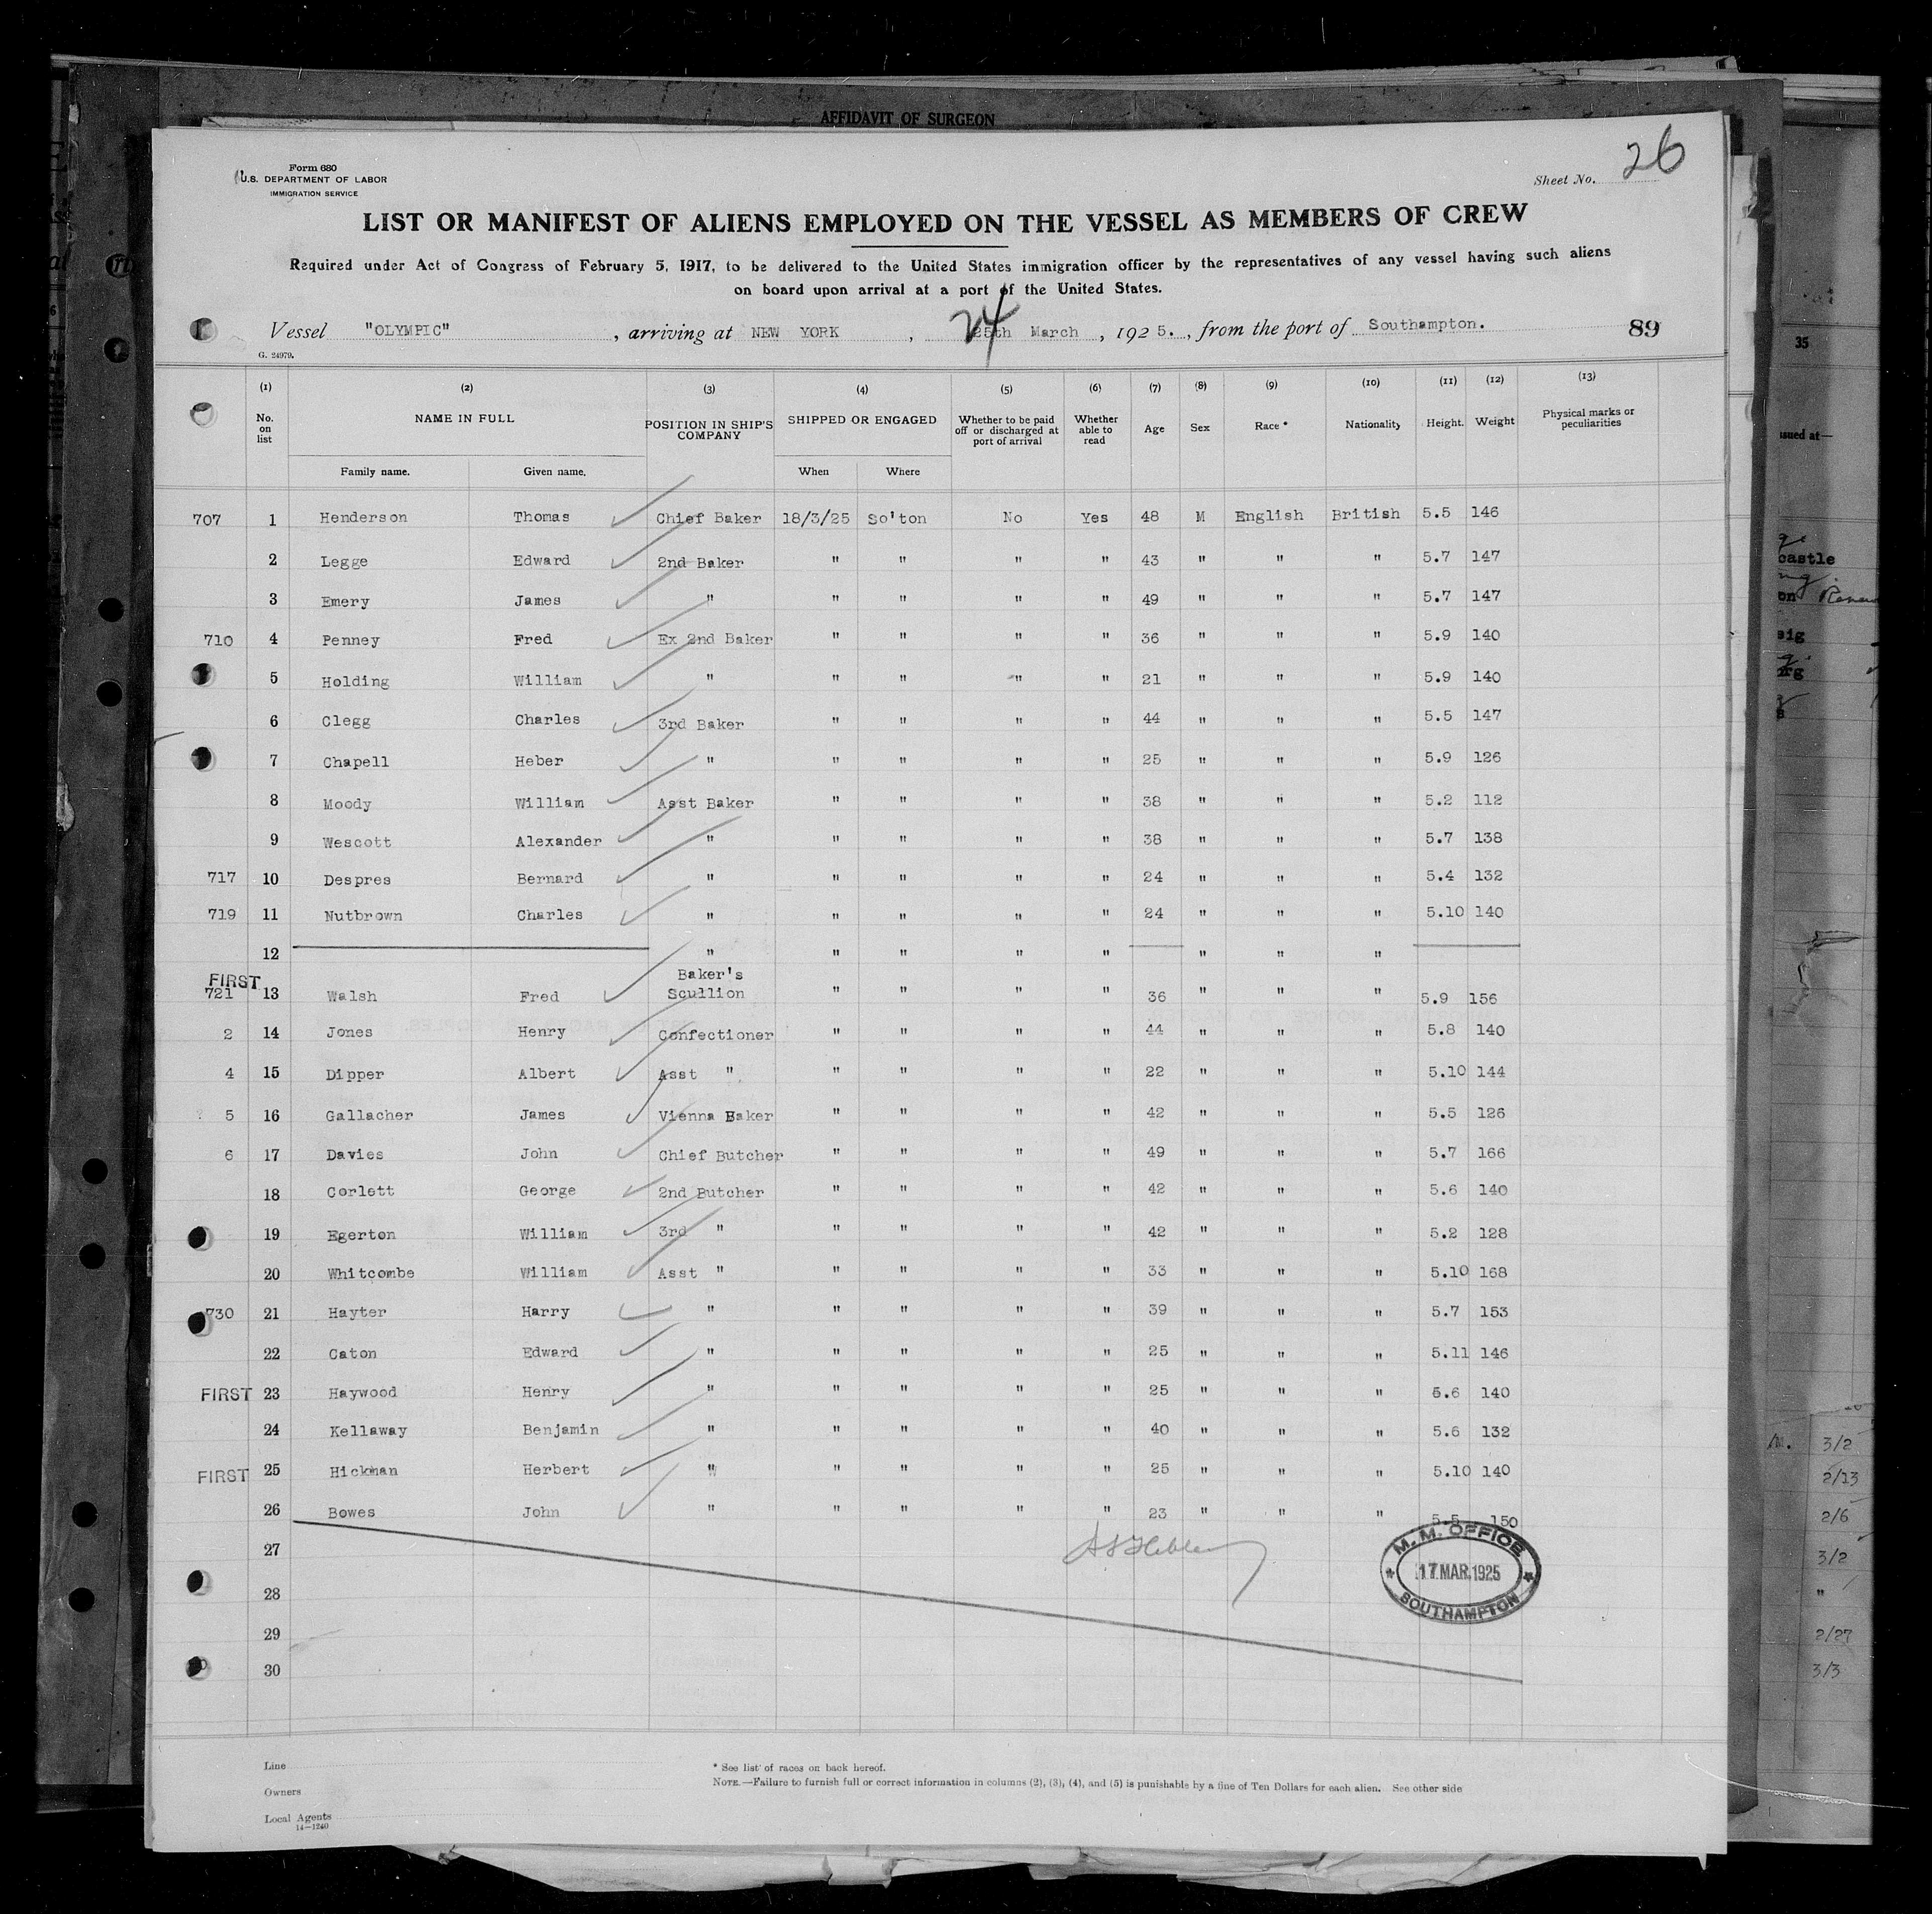 AFFIDAVIT OF SURGEON
26
Form 680
U.S. DEPARTMENT OF LABOR
IMMIGRATION SERVICE
Sheet No.
LIST OR MANIFEST OF ALIENS EMPLOYED ON THE VESSEL AS MEMBERS OF CREW
Required under Act of Congress of February 5, 1917, to be delivered to the United States immigration officer by the representatives of any vessel having such aliens
on board upon arrival at a port of the United States.
24
Vessel "OLYMPIC", arriving at NEW YORK, 25th March, 1925., from the port of Southampton. 89
G. 24979.
(1) (2) (3) (4) (5) (6) (7) (8) (9) (10) (11) (12) (13)
No. on list NAME IN FULL POSITION IN SHIP'S COMPANY SHIPPED OR ENGAGED Whether to be paid off or discharged at port of arrival Whether able to read Age Sex Race * Nationality Height. Weight Physical marks or peculiarities
Family name. Given name. When Where
707 1 Henderson Thomas Chief Baker 18/3/25 So'ton No Yes 48 M English British 5.5 146
2 Legge Edward 2nd Baker " " " " 43 " " " 5.7 147
3 Emery James " " " " " 49 " " " 5.7 147
710 4 Penney Fred Ex 2nd Baker " " " " 36 " " " 5.9 140
5 Holding William " " " " " 21 " " " 5.9 140
6 Clegg Charles 3rd Baker " " " " 44 " " " 5.5 147
7 Chapell Heber " " " " " 25 " " " 5.9 126
8 Moody William Asst Baker " " " " 38 " " " 5.2 112
9 Wescott Alexander " " " " " 38 " " " 5.7 138
717 10 Despres Bernard " " " " " 24 " " " 5.4 132
719 11 Nutbrown Charles " " " " " 24 " " " 5.10 140
12 " " " " " " " "
FIRST
721 13 Walsh Fred Baker's Scullion " " " " 36 " " " 5.9 156
2 14 Jones Henry Confectioner " " " " 44 " " " 5.8 140
4 15 Dipper Albert Asst " " " " " 22 " " " 5.10 144
5 16 Gallacher James Vienna Baker " " " " 42 " " " 5.5 126
6 17 Davies John Chief Butcher " " " " 49 " " " 5.7 166
18 Corlett George 2nd Butcher " " " " 42 " " " 5.6 140
19 Egerton William 3rd " " " " " 42 " " " 5.2 128
20 Whitcombe William Asst " " " " " 33 " " " 5.10 168
730 21 Hayter Harry " " " " " 39 " " " 5.7 153
22 Caton Edward " " " " " 25 " " " 5.11 146
FIRST 23 Haywood Henry " " " " " 25 " " " 5.6 140
24 Kellaway Benjamin " " " " " 40 " " " 5.6 132
FIRST 25 Hickman Herbert " " " " " 25 " " " 5.10 140
26 Bowes John " " " " " 23 " " " 5.5 150
27
28
29
30
M.M. OFFICE
17 MAR 1925
SOUTHAMPTON
Line
Owners
Local Agents
14—1240
* See list of races on back hereof.
NOTE.—Failure to furnish full or correct information in columns (2), (3), (4), and (5) is punishable by a fine of Ten Dollars for each alien. See other side
35
sued at—
castle
3/2
2/13
2/6
3/2
"
2/27
3/3